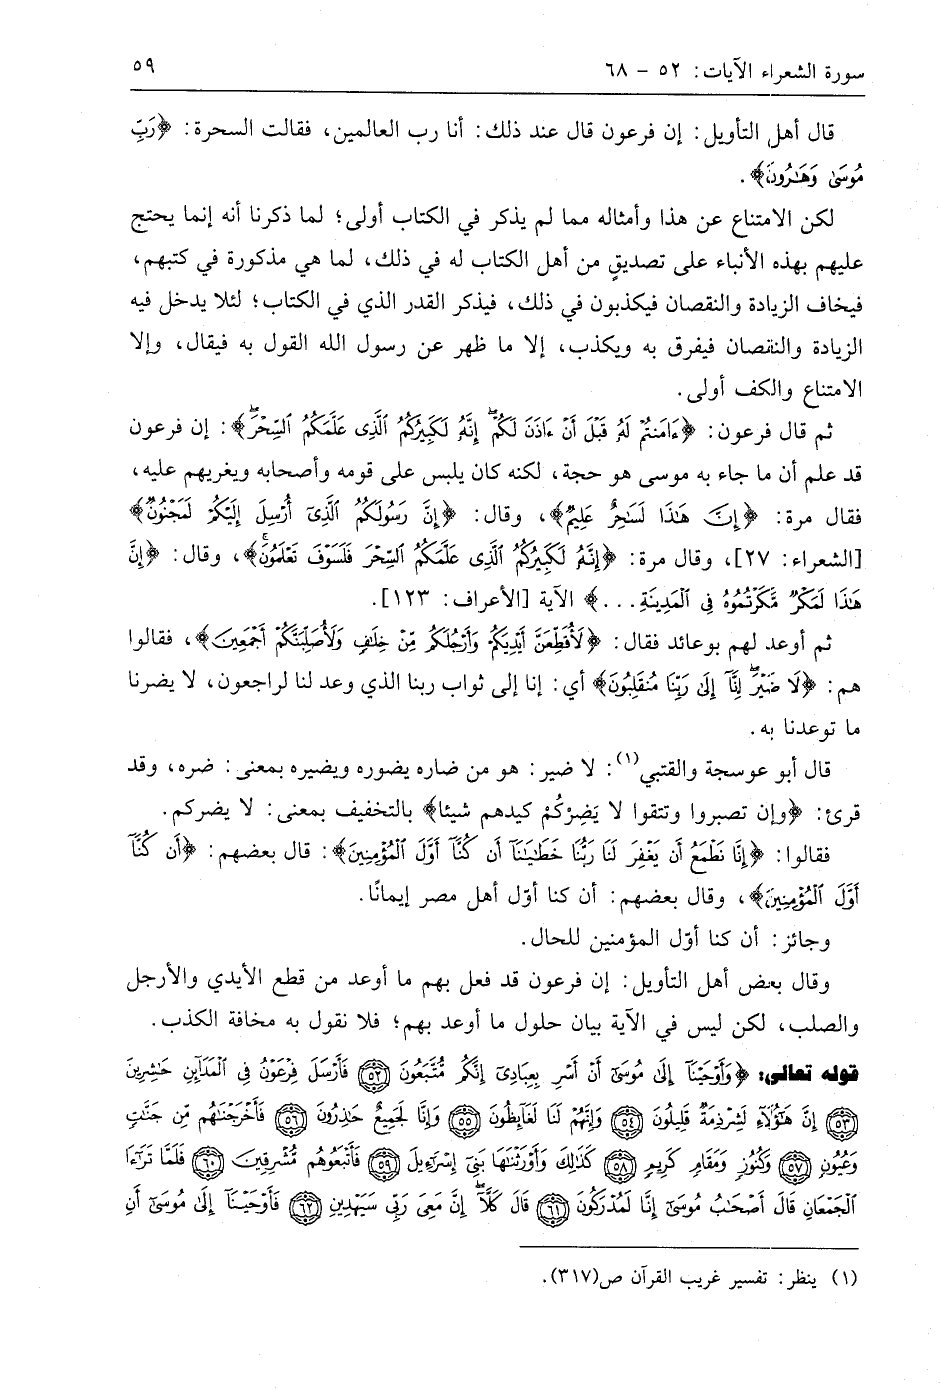 سورة الشعراء الآيات: ٥٢ - ٦٨ ٥٩
قال أهل التأويل: إن فرعون قال عند ذلك: أنا رب العالمين، فقالت السحرة: ﴿رَبِّ
مُوسَىٰ وَهَٰرُونَ﴾.
لكن الامتناع عن هذا وأمثاله مما لم يذكر في الكتاب أولى؛ لما ذكرنا أنه إنما يحتج
عليهم بهذه الأنباء على تصديقٍ من أهل الكتاب له في ذلك، لما هي مذكورة في كتبهم،
فيخاف الزيادة والنقصان فيكذبون في ذلك، فيذكر القدر الذي في الكتاب؛ لئلا يدخل فيه
الزيادة والنقصان فيفرق به ويكذب، إلا ما ظهر عن رسول الله القول به فيقال، وإلا
الامتناع والكف أولى.
ثم قال فرعون: ﴿ءَامَنتُمْ لَهُۥ قَبْلَ أَنْ ءَاذَنَ لَكُمْ ۖ إِنَّهُۥ لَكَبِيرُكُمُ ٱلَّذِى عَلَّمَكُمُ ٱلسِّحْرَ ۖ﴾: إن فرعون
قد علم أن ما جاء به موسى هو حجة، لكنه كان يلبس على قومه وأصحابه ويغريهم عليه،
فقال مرة: ﴿إِنَّ هَٰذَا لَسَٰحِرٌ عَلِيمٌ﴾، وقال: ﴿إِنَّ رَسُولَكُمُ ٱلَّذِىٓ أُرْسِلَ إِلَيْكُمْ لَمَجْنُونٌ﴾
[الشعراء: ٢٧]، وقال مرة: ﴿إِنَّهُۥ لَكَبِيرُكُمُ ٱلَّذِى عَلَّمَكُمُ ٱلسِّحْرَ فَلَسَوْفَ تَعْلَمُونَ ۚ﴾، وقال: ﴿إِنَّ
هَٰذَا لَمَكْرٌ مَّكَرْتُمُوهُ فِى ٱلْمَدِينَةِ...﴾ الآية [الأعراف: ١٢٣].
ثم أوعد لهم بوعائد فقال: ﴿لَأُقَطِّعَنَّ أَيْدِيَكُمْ وَأَرْجُلَكُم مِّنْ خِلَٰفٍ وَلَأُصَلِّبَنَّكُمْ أَجْمَعِينَ﴾، فقالوا
هم: ﴿لَا ضَيْرَ ۖ إِنَّآ إِلَىٰ رَبِّنَا مُنقَلِبُونَ﴾ أي: إنا إلى ثواب ربنا الذي وعد لنا لراجعون، لا يضرنا
ما توعدنا به.
قال أبو عوسجة والقتبي(١): لا ضير: هو من ضاره يضوره ويضيره بمعنى: ضره، وقد
قرئ: ﴿وإن تصبروا وتتقوا لا يَضِرْكُمْ كيدهم شيئا﴾ بالتخفيف بمعنى: لا يضركم.
فقالوا: ﴿إِنَّا نَطْمَعُ أَن يَغْفِرَ لَنَا رَبُّنَا خَطَٰيَٰنَآ أَن كُنَّآ أَوَّلَ ٱلْمُؤْمِنِينَ﴾: قال بعضهم: ﴿أَن كُنَّآ
أَوَّلَ ٱلْمُؤْمِنِينَ﴾، وقال بعضهم: أن كنا أوّل أهل مصر إيمانًا.
وجائز: أن كنا أوّل المؤمنين للحال.
وقال بعض أهل التأويل: إن فرعون قد فعل بهم ما أوعد من قطع الأيدي والأرجل
والصلب، لكن ليس في الآية بيان حلول ما أوعد بهم؛ فلا نقول به مخافة الكذب.
قوله تعالى: ﴿وَأَوْحَيْنَآ إِلَىٰ مُوسَىٰٓ أَنْ أَسْرِ بِعِبَادِىٓ إِنَّكُم مُّتَّبَعُونَ ٥٢ فَأَرْسَلَ فِرْعَوْنُ فِى ٱلْمَدَآئِنِ حَٰشِرِينَ
٥٣ إِنَّ هَٰٓؤُلَآءِ لَشِرْذِمَةٌ قَلِيلُونَ ٥٤ وَإِنَّهُمْ لَنَا لَغَآئِظُونَ ٥٥ وَإِنَّا لَجَمِيعٌ حَٰذِرُونَ ٥٦ فَأَخْرَجْنَٰهُم مِّن جَنَّٰتٍ
وَعُيُونٍ ٥٧ وَكُنُوزٍ وَمَقَامٍ كَرِيمٍ ٥٨ كَذَٰلِكَ وَأَوْرَثْنَٰهَا بَنِىٓ إِسْرَٰٓءِيلَ ٥٩ فَأَتْبَعُوهُم مُّشْرِقِينَ ٦٠ فَلَمَّا تَرَٰٓءَا
ٱلْجَمْعَانِ قَالَ أَصْحَٰبُ مُوسَىٰٓ إِنَّا لَمُدْرَكُونَ ٦١ قَالَ كَلَّآ ۖ إِنَّ مَعِىَ رَبِّى سَيَهْدِينِ ٦٢ فَأَوْحَيْنَآ إِلَىٰ مُوسَىٰٓ أَنِ
(١) ينظر: تفسير غريب القرآن ص(٣١٧).